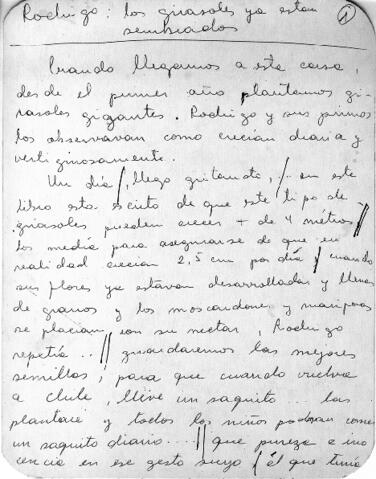 Rodrigo: los girasoles ya están
sembrados
1
Cuando llegamos a esta casa,
desde el primer año plantamos gi-
rasoles gigantes. Rodrigo y sus primos
los observavan como crecían diaria y
vertiginosamente.
Un día //, llego gritando, /.. en este
libro esta escrito de que este tipo de
girasoles pueden crecer + de 4 métros //
los media para asegurarse de que en
realidad crecían 2,5 cm por día / cuando
sus flores ya estavan desarrolladas y llenas
de granos y los moscardones y mariposas
se placían con su nectar, Rodrigo
repetía.. // guardaremos las mejores
semillas, para que cuando vuelva
a Chile, lléve un saquito... las
plantaré y todos los niños podran comer
un saquito diario.... // que pureza e ino
cencia en ese gesto suyo / él que tenía